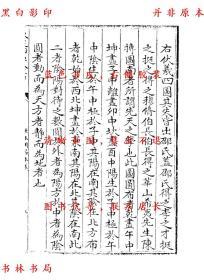 黑白影印
并非原本
右伏羲四圖其說皆出邵氏蓋邵氏得之李之才挺
之挺之得之穆脩伯長伯長得之華山希夷先生陳
摶圖南者所謂先天之學也此圖圓布者乾盡午中
坤盡子中離盡卯中坎盡酉中陽生於子中極於午
中陰生於午中極於子中其陽在南其陰在北方布
者乾始於西北坤盡於東南其陽在北其陰在南此
二者陰陽對待之數圓於外者為陽方於中者為陰
圓者動而為天方者靜而為地者也
书林书局
书林书局